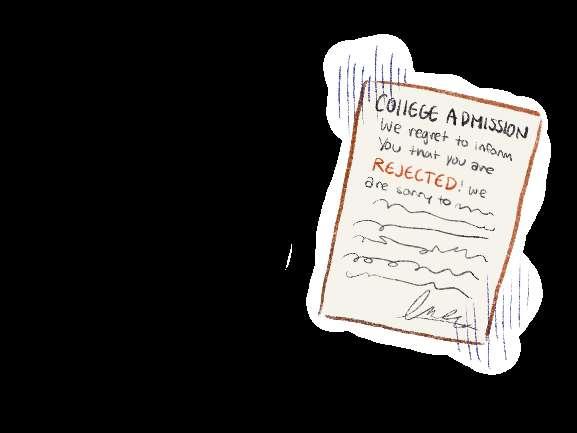 COllEGE ADMISSION
We regret to inform
You that you are
REJECTED! We
are sorry to